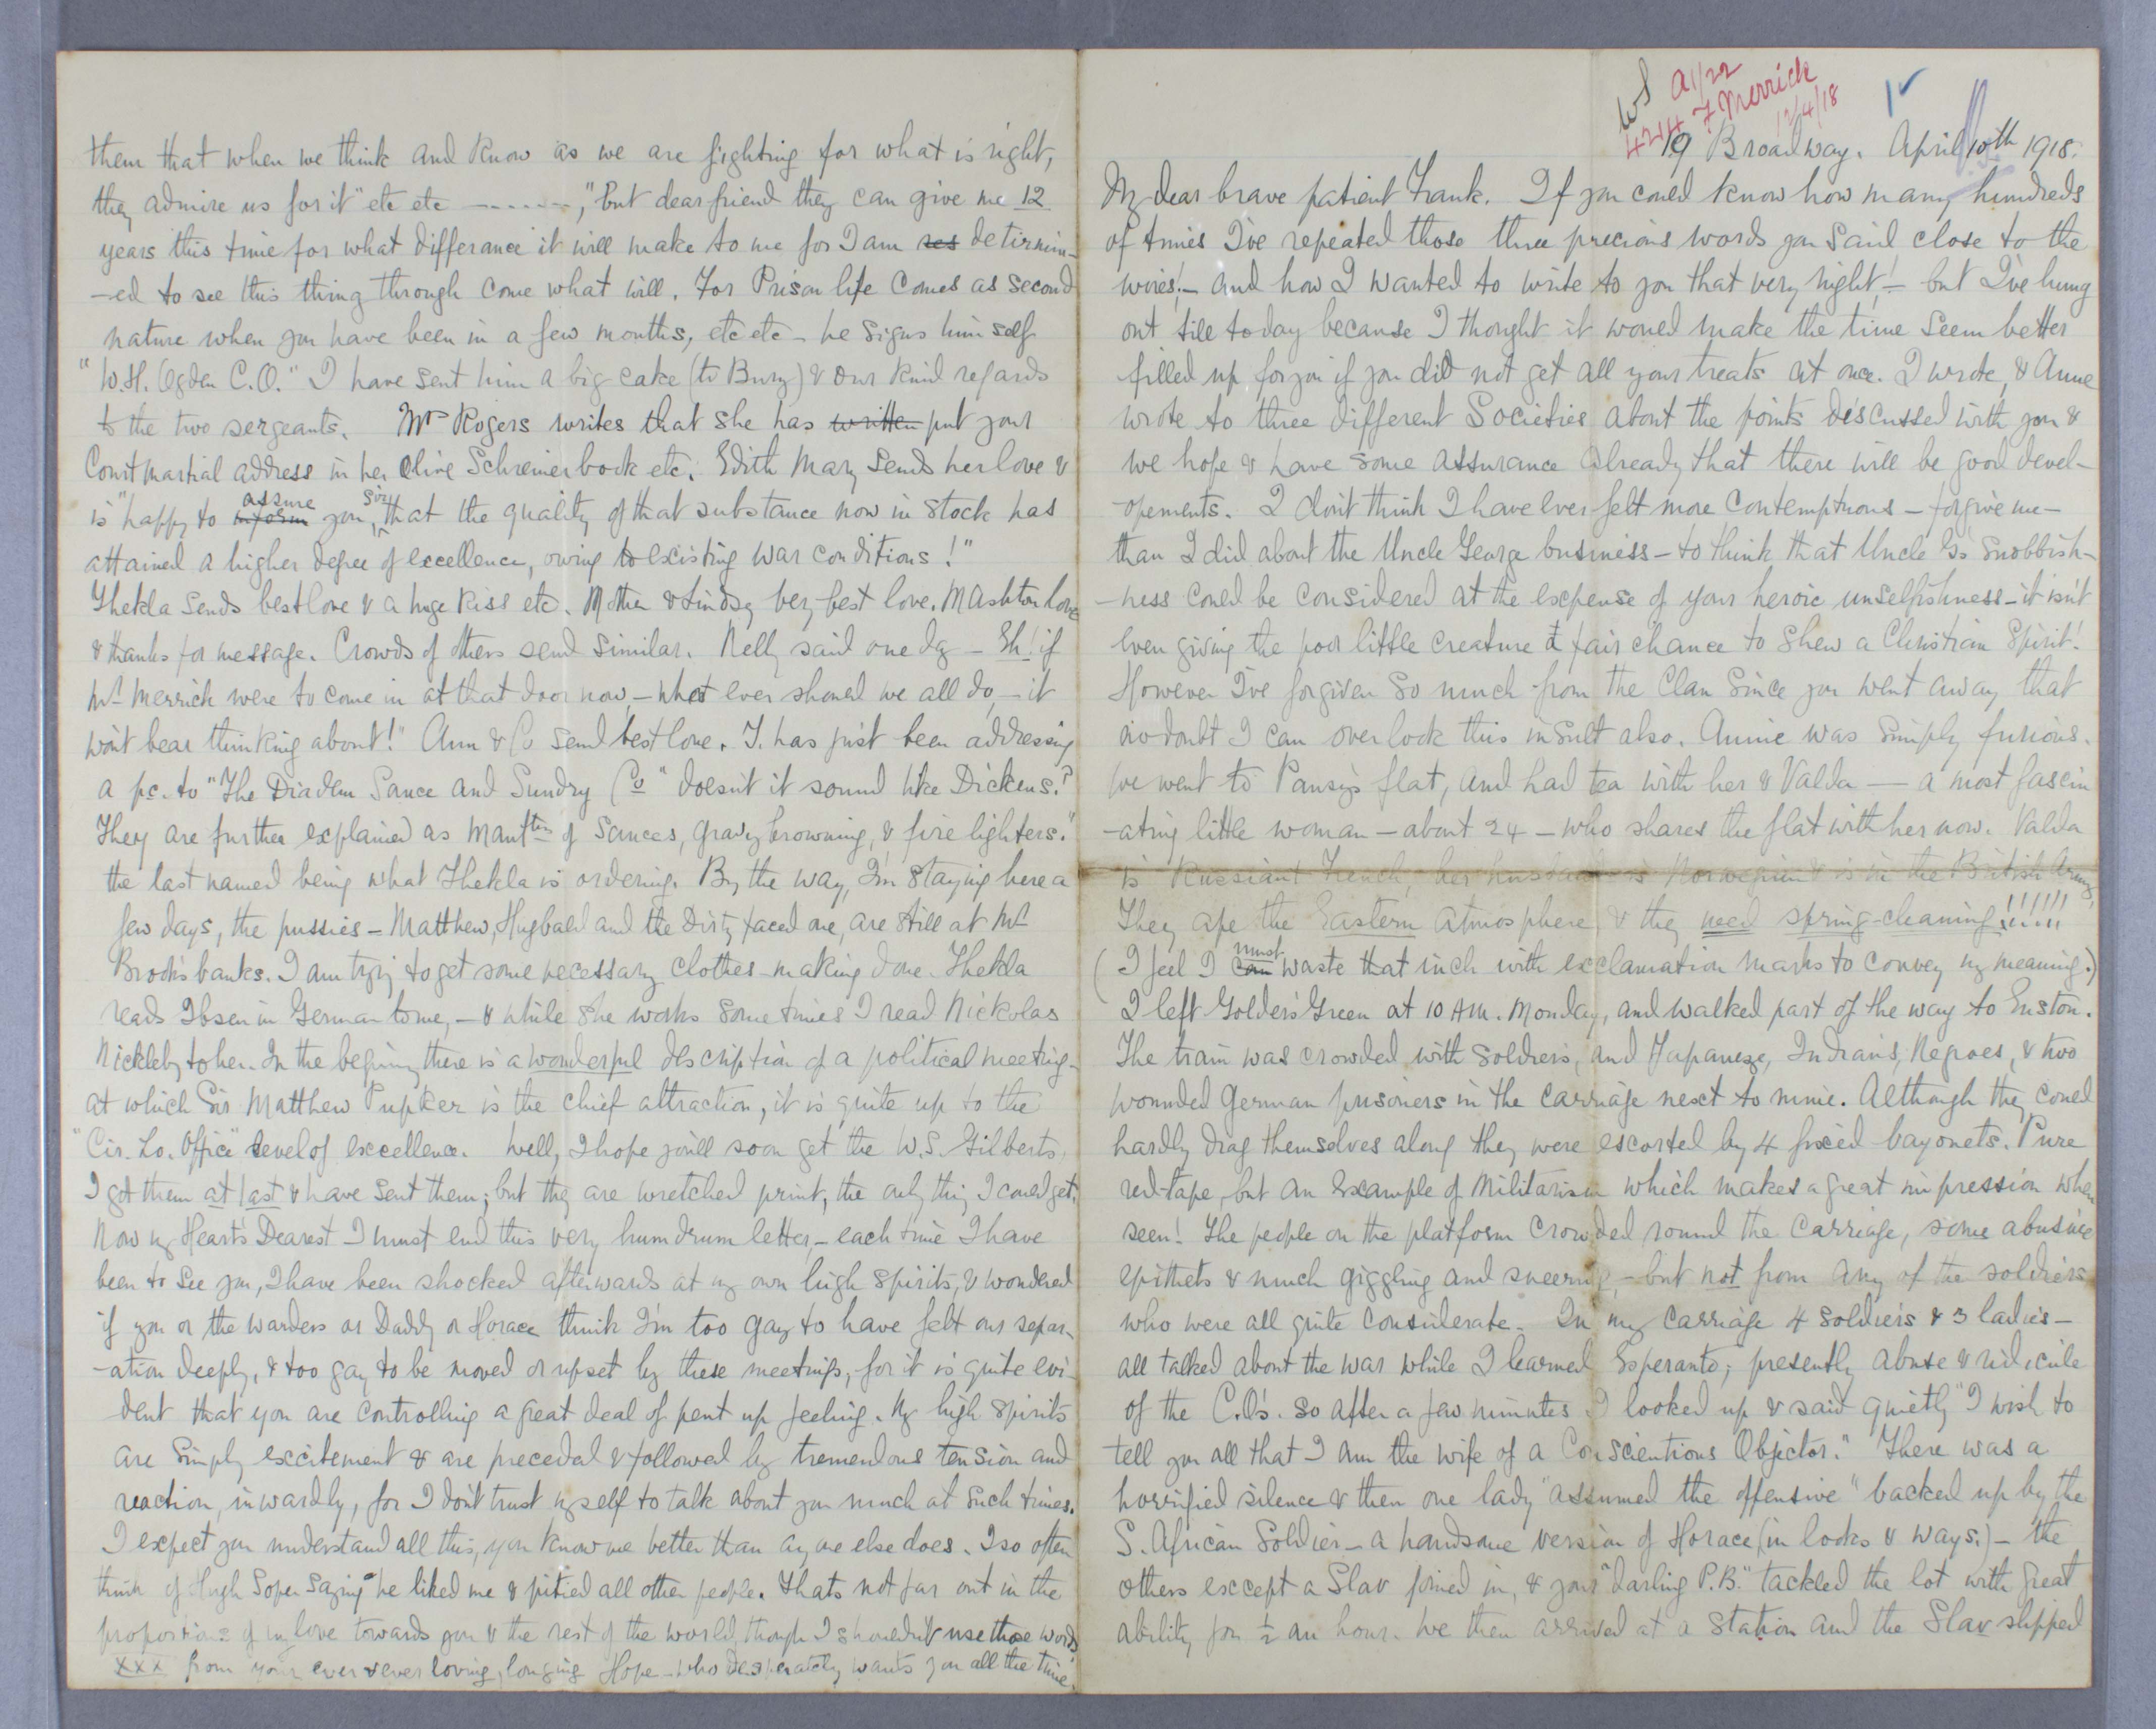 WS
A1/22
4214 F Merrick
12/4/18
1
19 Broadway. April 10th 1918.
My dear brave patient Frank. If you could know how many hundreds
of times I've repeated those three precious words you said close to the
wires! – and how I wanted to write to you that very night! – but I've hung
out till today because I thought it would make the time seem better
filled up for you if you did not get all your treats at once. I wrote, & Anne
wrote to three different Societies about the points discussed with you &
we hope & have some assurance already that there will be good devel-
-opements. I don't think I have ever felt more contemptuous – forgive me –
than I did about the Uncle George business – to think that Uncle G's Snobbish-
-ness could be considered at the expense of your heroic unselfishness – it isn't
even giving the poor little creature a fair chance to shew a Christian Spirit!
However I've forgiven so much from the Clan since you went away that
no doubt I can overlook this insult also. Annie was simply furious.
We went to Pansy's flat, and had tea with her & Valda — a most fascin
-ating little woman – about 24 – who shares the flat with her now. Valda
is Russian & French, her husband is Norwegian & is in the British Army,
They ape the Eastern atmosphere & they need spring-cleaning!!!!!!
(I feel I can must waste that inch with exclamation marks to convey my meaning.)
I left Golder's Green at 10 AM. Monday, and walked part of the way to Euston.
The train was crowded with soldiers, and Japanese, Indians, Negroes, & two
wounded German prisoners in the carriage next to mine. Although they could
hardly drag themselves along they were escorted by 4 fixed bayonets. Pure
red-tape, but an example of Militarism which makes a great impression when
seen! The people on the platform crowded round the carriage, some abusive
epithets & much giggling and sneering, – but not from any of the soldiers
who were all quite considerate. In my carriage 4 soldiers & 3 ladies –
all talked about the war while I learned Esperanto; presently abuse & ridicule
of the C.O's. so after a few minutes I looked up & said quietly "I wish to
tell you all that I am the wife of a Conscientious Objector." There was a
horrified silence & then one lady "assumed the offensive" backed up by the
S. African Soldier – a handsome version of Horace (in looks & ways.) – the
others except a Slav joined in, & your "darling P.B." tackled the lot with great
ability for ½ an hour. We then arrived at a station and the Slav slipped
them that when we think and know as we are fighting for what is right,
they admire us for it" etc etc ------, "but dear friend they can give me 12
years this time for what differance it will make to me for I am res detirmin-
-ed to see this thing through come what will. For Prison life comes as second
nature when you have been in a few months, etc etc – he signs himself
"W.H. Ogden C.O." I have sent him a big cake (to Bury) & our kind regards
to the two sergeants. Mrs Rogers writes that she has written put your
Court martial address in her Olive Schreiner book etc. Edith Mary sends her love &
is "happy to inform assure you, sir, that the quality of that substance now in stock has
attained a higher degree of excellence, owing to existing war conditions!"
Thekla sends best love & a huge kiss etc. Mother & Lindsey very best love. M Ashton love
& thanks for message. Crowds of others send similar. Nelly said one dy – Eh! if
Mr Merrick were to come in at that door now, – what ever should we all do, – it
won't bear thinking about!" Ann & Co send best love. T. has just been addressing
a pc. to "The Diadem Sauce and Sundry Co" doesn't it sound like Dickens?
They are further explained as Manftrs of Sauces, gravy browning, & fire lighters."
the last named being what Thekla is ordering. By the way, I'm staying here a
few days, the pussies – Matthew, Hugbald and the Dirty faced one, are still at Mrs
Brooksbanks. I am trying to get some necessary clothes-making done. Thekla
reads Ibsen in German to me, – & while she works sometimes I read Nickolas
Nickleby to her. In the begining there is a wonderful description of a political meeting –
at which Sir Matthew Pupker is the chief attraction, it is quite up to the
"Cir. Lo. Office" level of excellence. Well, I hope you'll soon get the W.S. Gilberts,
I got them at last & have sent them; but they are wretched print, the only thing I could get.
Now my Heart's Dearest I must end this very humdrum letter, – each time I have
been to see you, I have been shocked afterwards at my own high spirits, & wondered
if you or the warders or Daddy or Horace think I'm too gay to have felt our separ-
-ation deeply, & too gay to be moved or upset by these meetings, for it is quite evi-
dent that you are controlling a great deal of pent up feeling. My high spirits
are simply excitement & are preceded & followed by tremendous tension and
reaction, inwardly, for I don't trust myself to talk about you much at such times.
I expect you understand all this, you know me better than any one else does. I so often
think of Hugh Soper saying "he liked me & pitied all other people. Thats not far out in the
proportions of my love towards you & the rest of the world, though I shouldn't use those words.
xxx from your ever & ever loving, longing Hope – who desperately wants you all the time.